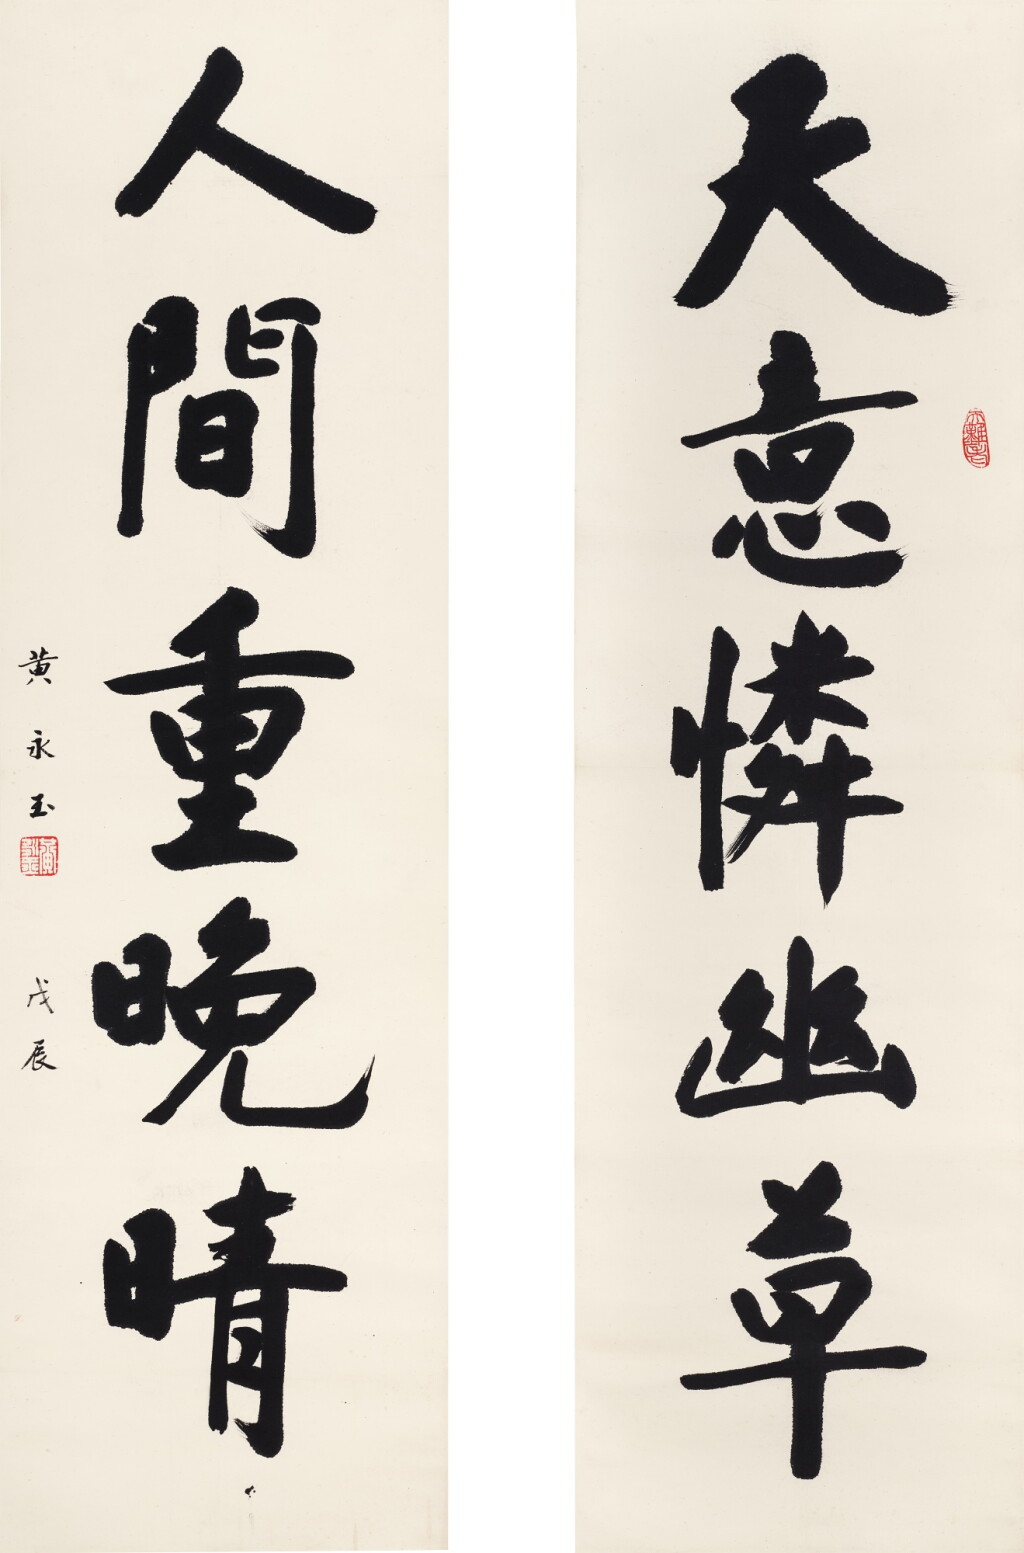 天意憐幽草
人間重晚晴
黄永玉
戊辰